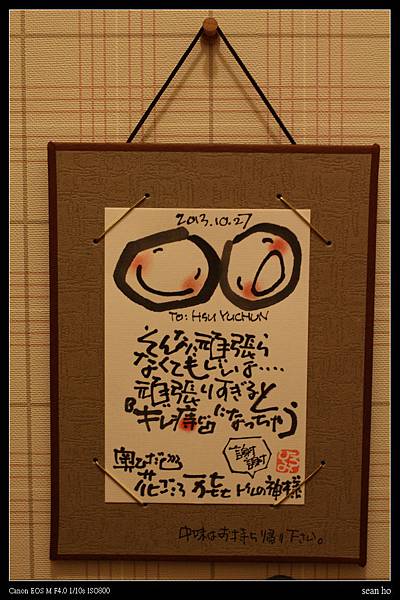 2013.10.27
TO: HSU YUCHUN
そんなに頑張ら
なくてもいいよ....
頑張りすぎると
キレ痔になっちゃう
謝謝
奥ひだ
花ごころ トイレの神様
中味はお持ち帰り下さい。
Canon EOS M F4.0 1/10s ISO800
sean ho